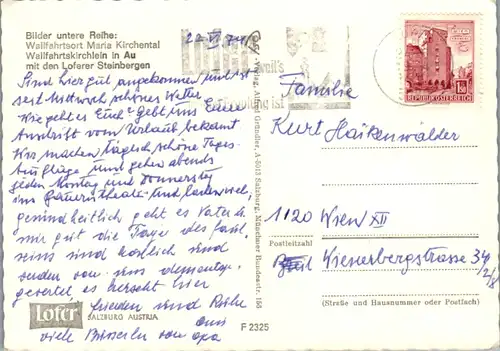 Bilder untere Reihe:
Wallfahrtsort Maria Kirchental
Wallfahrtskirchlein in Au
mit den Loferer Steinbergen
Sind hier gut angekommen und ist
seit Mittwoch schönes Wetter
Wie geht es Euch? Habt ins Eure
Anschrift vom Verlaub bekamt
Wir machen täglich schöne Tages-
Ausflüge und gehen abends
jeden Montag und Donnerstag
ins Bauerntheater und lachen viel,
gesundheitlich geht es Vater u.
mir gut die Tage des faul
seins sind herrlich und
werden von uns
es herscht hier
Frieden und Ruhe
Omi
viele Busserln von opa
Lofer
SALZBURG AUSTRIA
F 2325
Verlag Alfred Gründler, A-5013 Salzburg, Münchner Bundesstr. 156
REPUBLIK ÖSTERREICH
Familie
Kurt Haikenwälder
1120 Wien XII
Postleitzahl
Wienerbergstrasse 34
2/8
(Straße und Hausnummer oder Postfach)